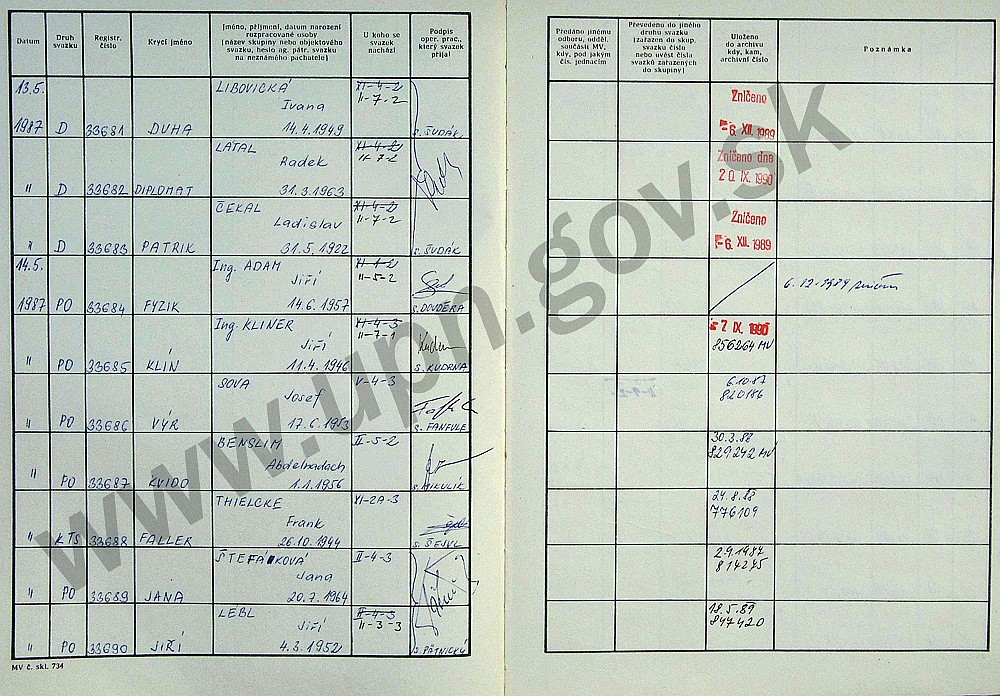 Datum
Druh svazku
Registr. číslo
Krycí jméno
Jméno, příjmení, datum narození
rozpracované osoby
(název skupiny nebo objektového
svazku, heslo ag. pátr. svazku
na neznámého pachatele)
U koho se
svazek
nachází
Podpis
oper. prac.,
který svazek
přijal
Předáno jinému
odboru, odděl.
součásti MV,
kdy, pod jakým
čís. jednacím
Převedeno do jiného
druhu svazku
(zařazen do skup.
svazku číslo
nebo uvést čísla
svazků zařazených
do skupiny)
Uloženo
do archivu
kdy, kam,
archivní číslo
Poznámka
13.5. LIBOVICKÁ XI-4-2
Ivana II-7-2 Zničeno
1987 D 33681 DUHA 14.4.1949 s. ŠUDÁK -6. XII. 1989
LATAL XI-4-2
Radek II-7-2 Zničeno dne
" D 33682 DIPLOMAT 31.3.1963 20. IX. 1990
ČEKAL XI-4-2 Zničeno
Ladislav II-7-2
" D 33683 PATRIK 31.5.1922 s. ŠUDÁK -6. XII. 1989
14.5. Ing. ADAM XI-1-2
Jiří II-5-2
1987 PO 33684 FYZIK 14.6.1957 s. DOUDĚRA
Ing. KLINER XI-4-3 -7. IX. 1990
Jiří II-7-1 856264 MV
" PO 33685 KLÍN 11.4.1946 s. KUDRNA
SOVA V-4-3 6.10.87
Josef 820186
" PO 33686 VÝR 17.6.1953 s. FANFULE
BENSLIM II-5-2 30.3.88
Abdelhadoch 829242 MV
" PO 33687 KVIDO 1.1.1956 s. MIKULÍK
THIELCKE XI-2A-3 24.8.88
Frank 776109
" KTS 33688 FALLER 26.10.1944 s. ŠEJVL
ŠTEFÁKOVÁ II-4-3 2.9.1987
Jana 814275
" PO 33689 JANA 20.7.1964
LEBL II-4-3 18.5.89
Jiří II-3-3 847420
" PO 33690 JIŘÍ 4.3.1952 s. PÁTNICKÝ
MV č. skl. 734
www.upn.gov.sk